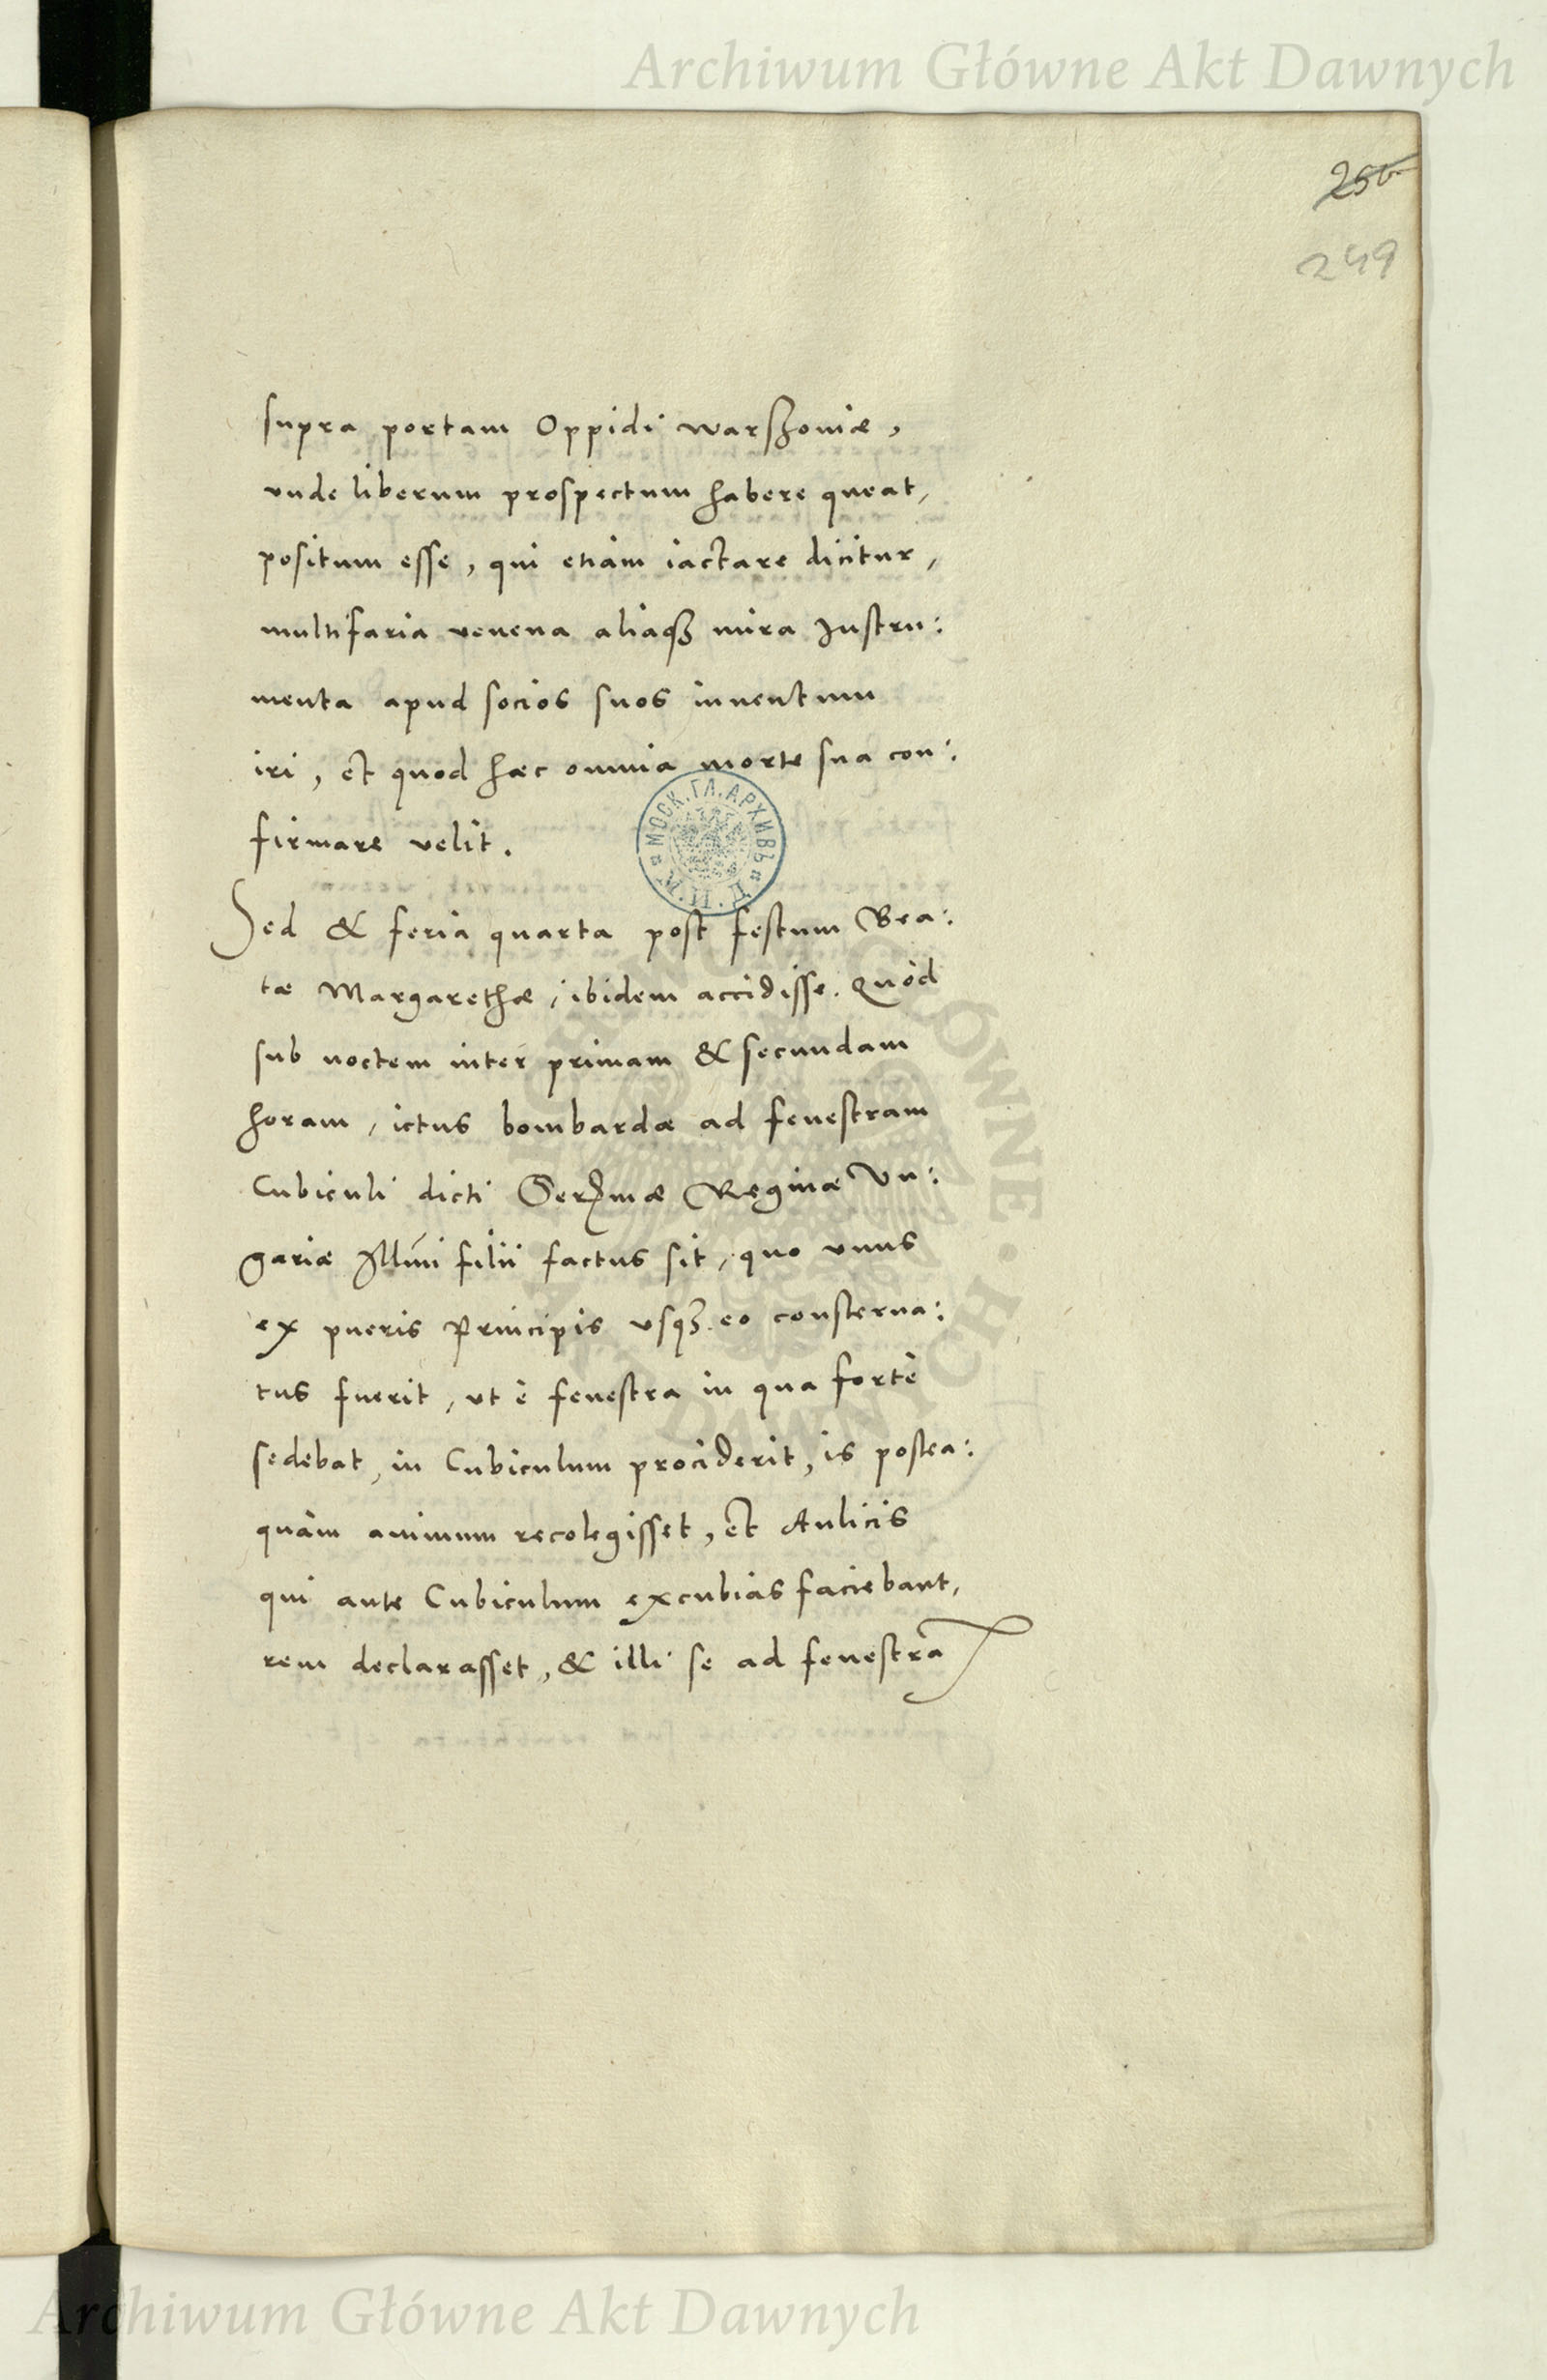 Archiwum Główne Akt Dawnych
256
249
supra portam Oppidi warszoviæ,
vnde liberum prospectum habere queat,
positum esse, qui etiam iactare dicitur,
multifaria venena aliaqꝫ mira Instru:
menta apud socios suos inventum
iri, et quod hæc omnia morte sua con:
firmare velit.
МОСК. ГЛ. АРХИВЪ
Sed & feria quarta post festum Bea:
tæ Margarethæ, ibidem accidisse. Quòd
sub noctem inter primam & secundam
horam, ictus bombardæ ad fenestram
Cubiculi dicti Serᷠmæ Reginæ Vn:
gariæ Illmi filii factus sit, quo vnus
ex pueris Principis vsqꝫ eo consterna:
tus fuerit, vt è fenestra in qua fortè
sedebat, in Cubiculum prociderit, is postea:
quàm animum recolegisset, et Aulicis
qui ante Cubiculum excubias faciebant,
rem declarasset, & illi se ad fenestrã
GŁÓWNE · DAWNYCH
Archiwum Główne Akt Dawnych